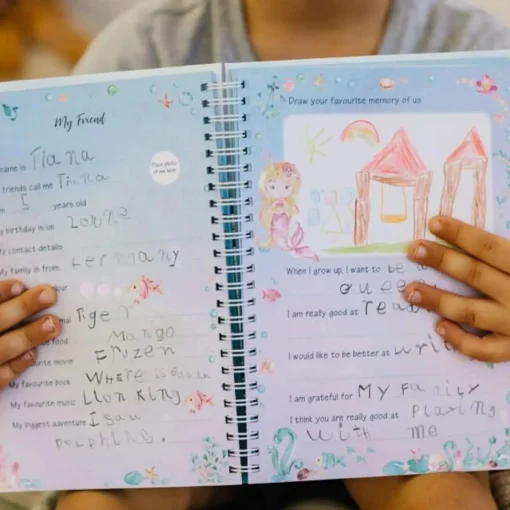 My Friend
name is Tiana
friends call me Tiana
5 years old
birthday is on
My contact details
My family is from Germany
our
Place photo of me here
Tiger
food Mango
favourite movie Frozen
My favourite book Where is
My favourite music Lion King
My biggest adventure I saw
Dolphins.
Draw your favourite memory of us
When I grow up, I want to be a
queen
I am really good at
I would like to be better at
I am grateful for My Family
I think you are really good at Playing
with me